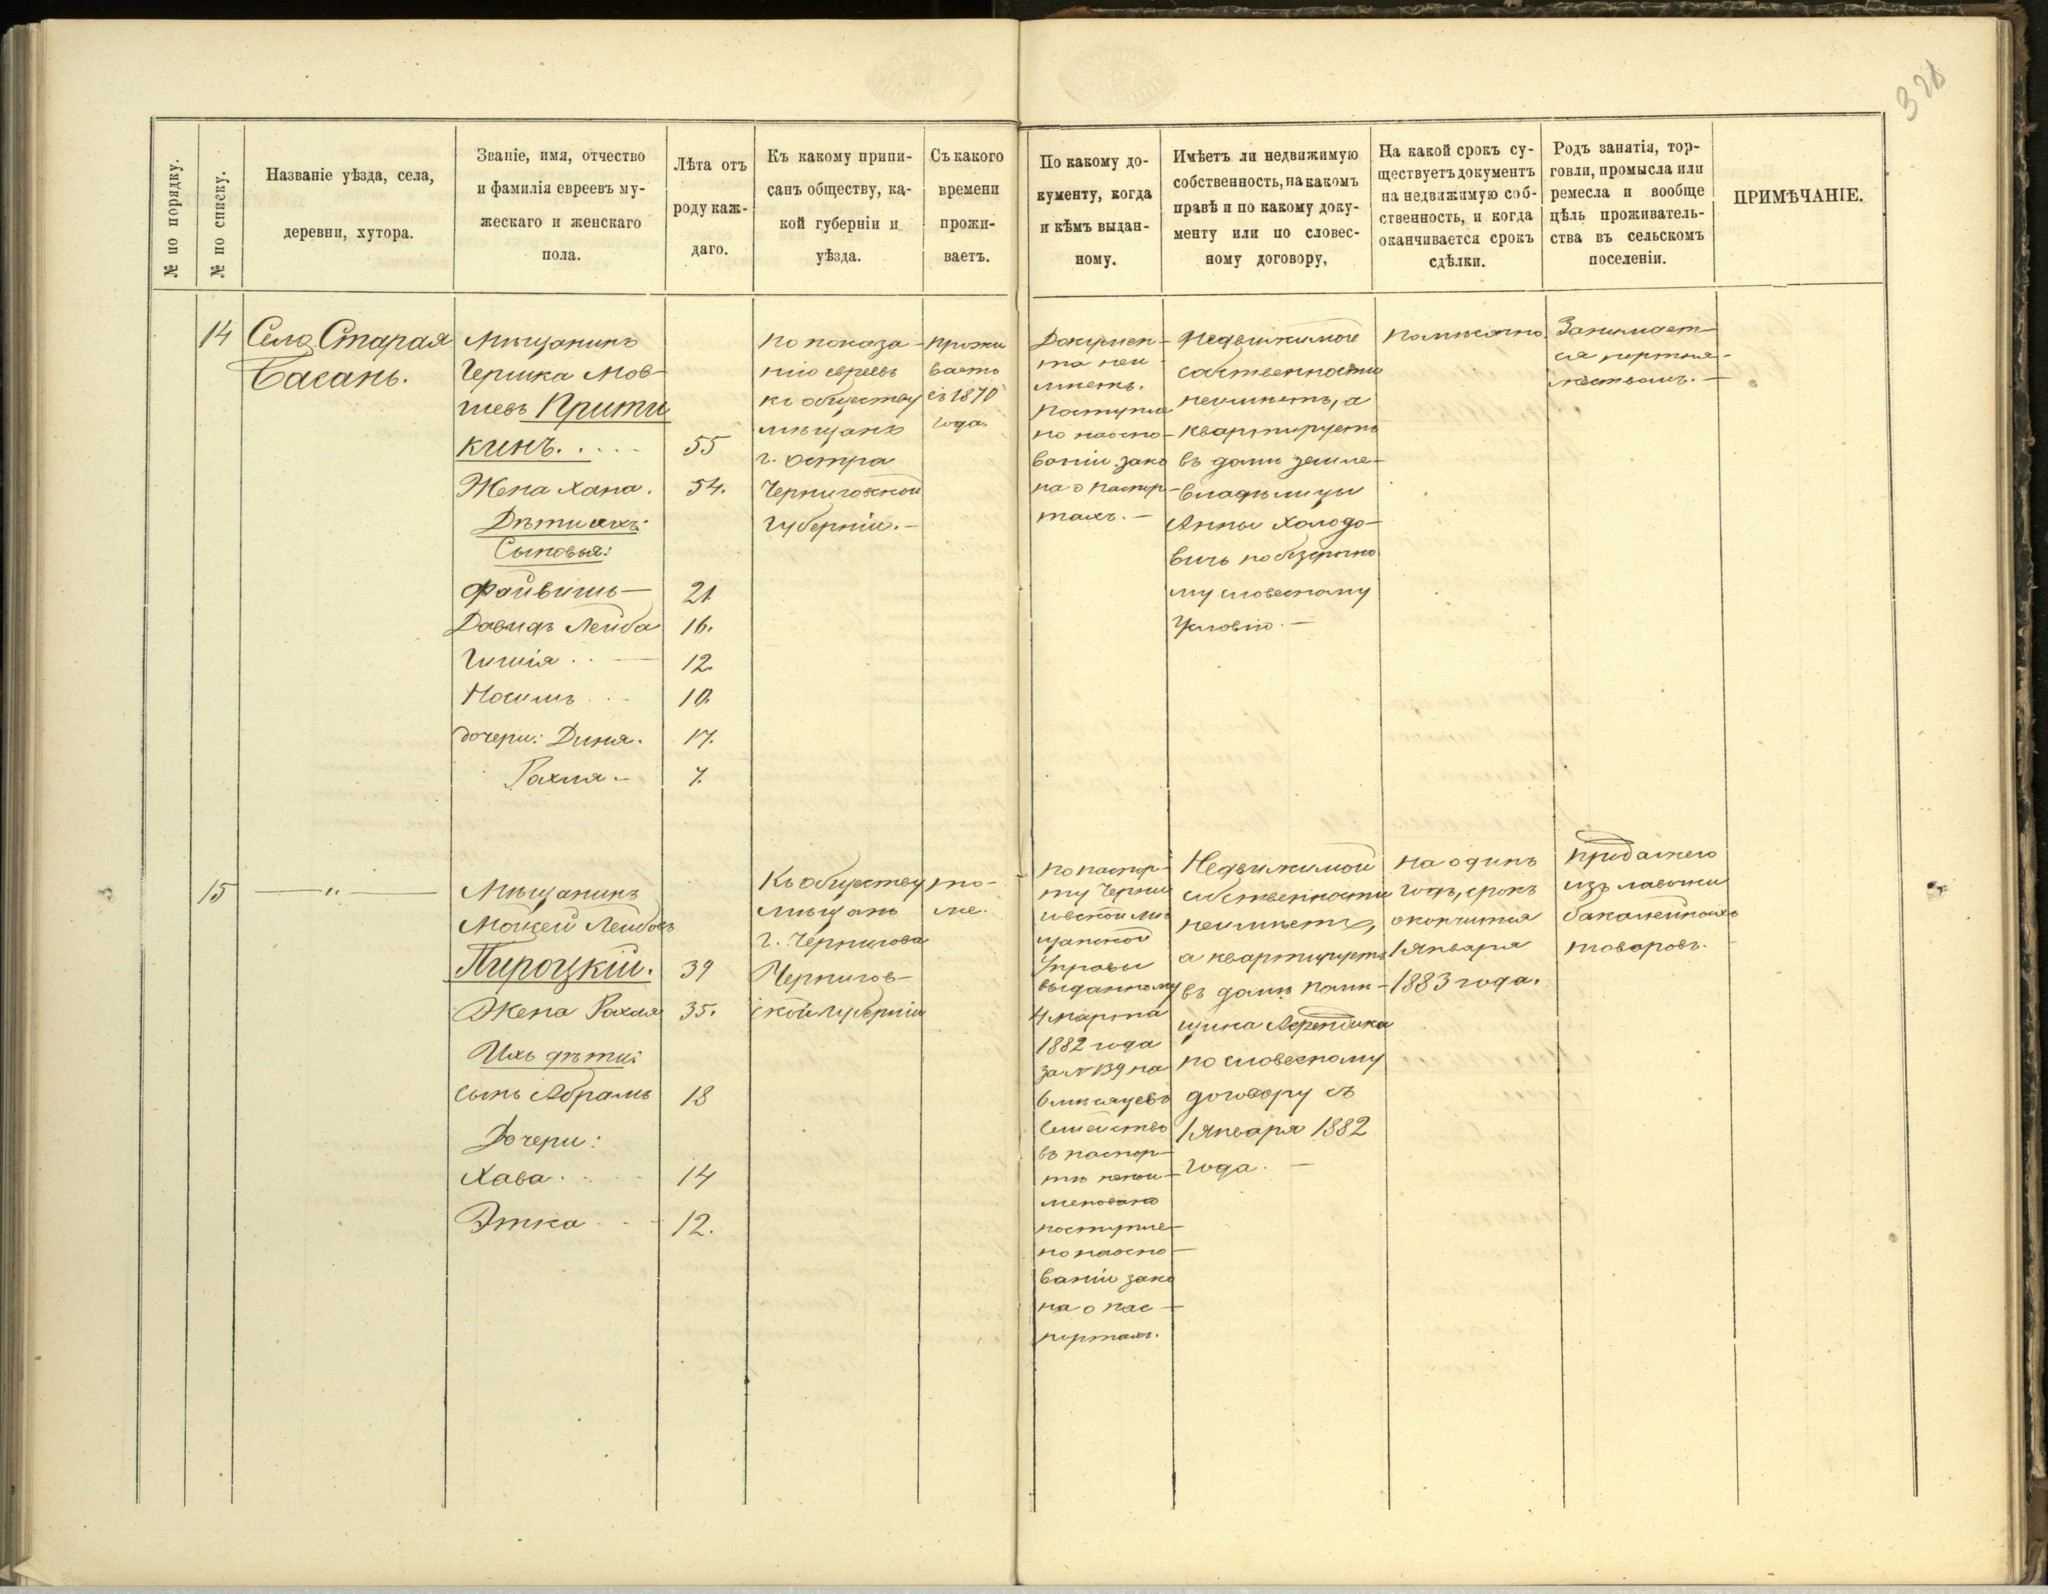 328
№ по порядку.
№ по списку.
Названіе уѣзда, села,
деревни, хутора.
Званіе, имя, отчество
и фамилія евреевъ му-
жескаго и женскаго
пола.
Лѣта отъ
роду каж-
даго.
Къ какому припи-
санъ обществу, ка-
кой губерніи и
уѣзда.
Съ какого
времени
прожи-
ваетъ.
По какому до-
кументу, когда
и кѣмъ выдан-
ному.
Имѣетъ ли недвижимую
собственность, на какомъ
правѣ и по какому доку-
менту или по словес-
ному договору,
На какой срокъ су-
ществуетъ документъ
на недвижимую соб-
ственность, и когда
оканчивается срокъ
сдѣлки.
Родъ занятія, тор-
говли, промысла или
ремесла и вообще
цѣль проживатель-
ства въ сельскомъ
поселеніи.
ПРИМѢЧАНІЕ.
14
Село Старая
Басань.
Мѣщанинъ
Гершка Мов-
шевъ Прити
кинъ.
55
Жена Хана.
54.
Дѣти ихъ:
Сыновья:
Файвишь
21.
Давидъ Лейба
16.
12.
10.
дочери: Диня.
17.
Рахля.
7.
По показа-
нію евреевъ
къ обществу
мѣщанъ
г. Остра
Черниговской
губерніи.
Прожи
ваетъ
съ 1870
года.
Докумен-
та неи-
мѣетъ.
Поступле
но наосно-
ваніи зако
на о паспор-
тахъ.
Недвижимой
собственности
неимѣетъ, а
квартируетъ
въ домѣ земле-
владѣлицы
Анны Холодо-
вичь по безсрочно
му словесному
условію.
Помѣсячно.
Занимает-
ся портня-
жествомъ.
15
— " —
Мѣщанинъ
Мошей Лейбовъ
Пироцкій.
39
Жена Рахля
35.
Ихъ дѣти:
сынъ Абрамъ
18
Дочери:
Хава.
14
Этка
12.
Къ обществу
мѣщанъ
г. Чернигова
Чернигов-
ской губерніи
то-
же.
По паспор-
ту Черни
говской мѣ
щанской
Управы
выданному
4 марта
1882 года
за № 139 на
6 мѣсяцевъ
Семейство
въ паспор-
тѣ непои-
меновано
поступле-
но наосно-
ваніи зако
на о пас-
портахъ.
Недвижимой
собственности
неимѣетъ,
а квартируетъ
въ домѣ помѣ-
щика Афендика
по словесному
договору съ
1 Января 1882
года.
На одинъ
годъ, срокъ
окончится
1 Января
1883 года.
Продажею
изъ лавочки
бакалейныхъ
товаровъ.